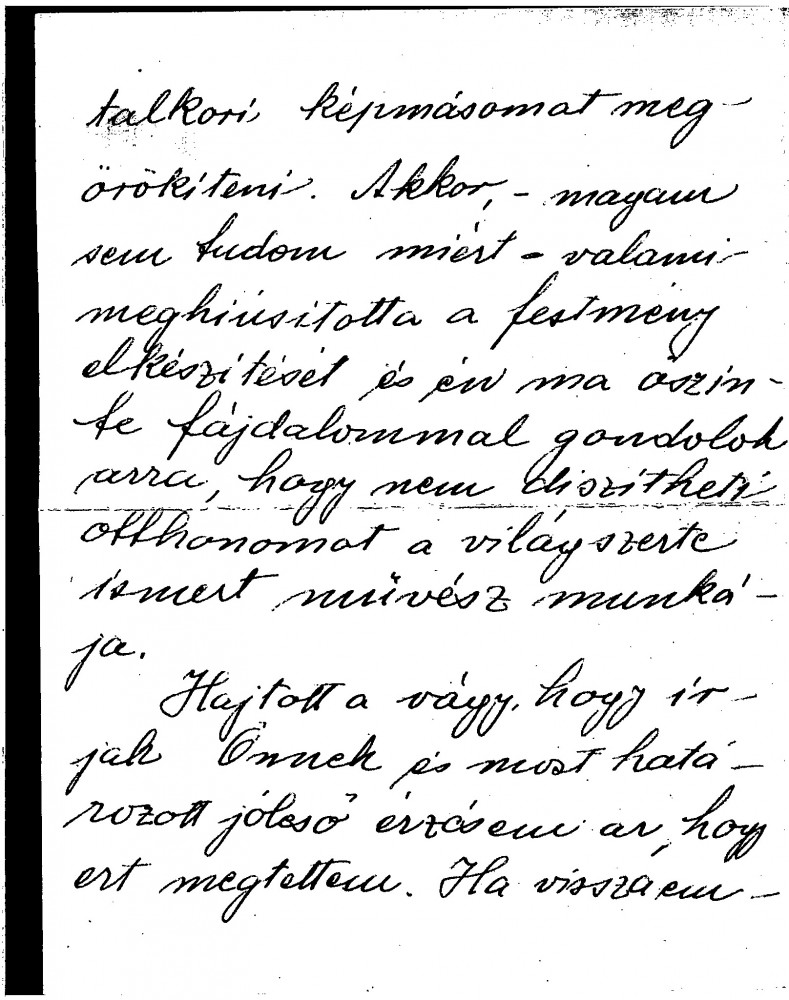 talkori képmásomat meg-
örökiteni. Akkor, - magam
sem tudom miért - valami
meghiúsitotta a festmény
elkészitését és én ma őszin-
te fájdalommal gondolok
arra, hogy nem diszitheti
otthonomat a világszerte
ismert müvész munká-
ja.
Hajtott a vágy, hogy ir-
jak Önnek és most hatá-
rozott jóleső érzésem az, hogy
ezt megtettem. Ha visszaem-